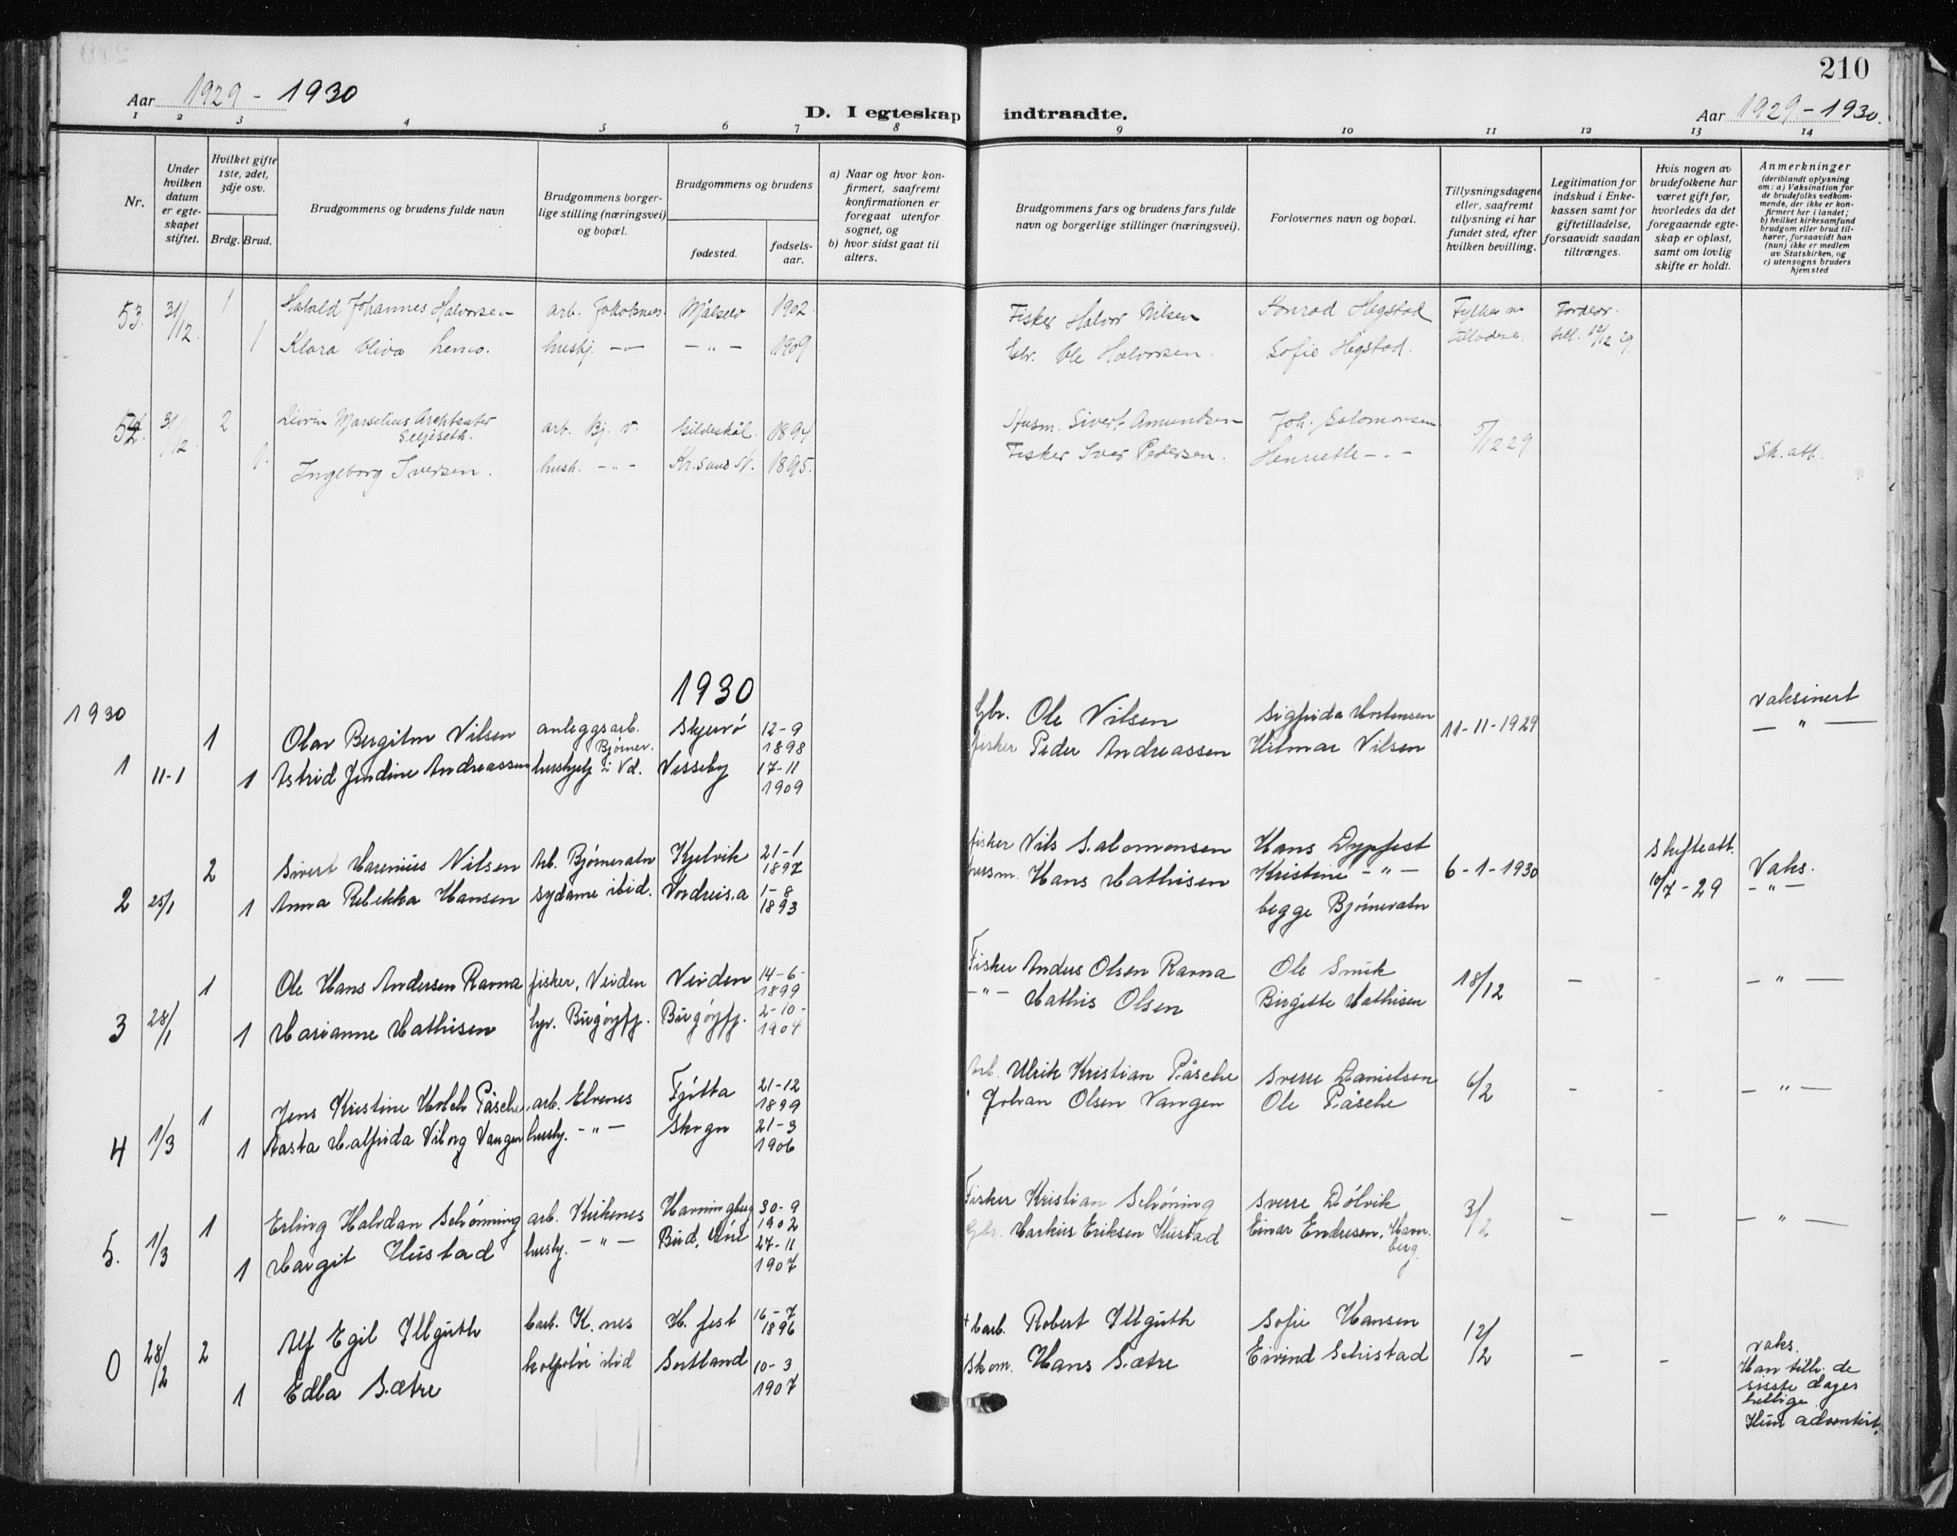 210
Aar 1929 - 1930
D. I egteskap indtraadte.
Aar 1929 - 1930.
1 2 3 4 5 6 7 8 9 10 11 12 13 14
Nr.
Under hvilken datum er egteskapet stiftet.
Hvilket gifte 1ste, 2det, 3dje osv.
Brdg. Brud.
Brudgommens og brudens fulde navn
Brudgommens borgerlige stilling (næringsvei) og bopæl.
Brudgommens og brudens
fødested.
fødselsaar.
a) Naar og hvor konfirmert, saafremt konfirmationen er foregaat utenfor sognet, og
b) hvor sidst gaat til alters.
Brudgommens fars og brudens fars fulde navn og borgerlige stillinger (næringsvei).
Forlovernes navn og bopæl.
Tillysningsdagene eller, saafremt tillysning ei har fundet sted, efter hvilken bevilling.
Legitimation for indskud i Enkekassen samt for giftetilladelse, forsaavidt saadan tiltrænges.
Hvis nogen av brudefolkene har været gift før, hvorledes da det foregaaende egteskap er opløst, samt om lovlig skifte er holdt.
Anmerkninger
(deriblandt oplysning om: a) Vaksination for de brudefolks vedkommende, der ikke er konfirmert her i landet; b) hvilket kirkesamfund brudgom eller brud tilhører, forsaavidt han (hun) ikke er medlem av Statskirken, og c) utensogns bruders hjemsted
53. 31/12. 1 Harald Johannes Halvorsen arb. Jakobnes. Målselv 1902. Fisker Halvor Nilsen Konrad Hegstad
1 Klara Oliva hushj. — — " — 1909 Gbr. Ole Halvorsen. Sofie Hegstad. 12/12 29
31/12 2 Marselius arb. Bj. v. Gildeskål 1894 Husm. Sivert Amundsen Joh. Salomonsen 5/12 29
1. Ingeborg Iversen. hush. - " - Kr. sund N. 1895. Fisker Iver Pedersen. Henriette - " - Sk. att.
1930
1930
1 11-1 1 Olav Bergiton Nilsen anleggsarb. Bjørnev. Skjervö 12-9 1898 Gbr. Ole Nilsen Sigfrida Mortensen 11-11-1929 Vaksinert
1 Astrid Jendine Andreassen hushjelp i Vd. Nesseby 17-11 1909 fisker Peder Andreassen Hilmar Nilsen — " —
2 25/1 2 Sivert Marenius Nilsen Arb. Bjørnevatn Kjelvik 21-1 1897 fisker Nils Salomonsen Hans Dypfest 6-1-1930 Skifteatt. 10/7 - 29 Vaks.
1 Anna Rebekka Hansen sydame ibid. Nordreisa 1-8 1893 husm. Hans Mathisen Kristine - " - — " —
begge Bjørnevatn
3 28/1 1 Ole Hans Andersen Ravna fisker, Neiden Neiden 14-6-1899 Fisker Anders Olsen Ravna Ole Smuk 18/12 — - — " —
1 Marianne Mathisen Bugøyfj. Bugøyfj. 2-10-1904 — " — Mathis Olsen Birgitte Mathisen
4 1/3 1 Jens Kristine Holch Påsche, arb. Elvenes Tjøtta 21-12 1899 Arb. Ulrik Kristian Påsche Sverre Danielsen 6/2 - - — " —
1 Aasta Malfrida Viborg Vangen hushj. - " — Skogn 21-3 1906 " Johan Olsen Vangen Ole Påsche
5. 1/3 1 Erling Halvdan Schönning arb. Kirkenes Havningberg 30-9 1902 Fisker Kristian Schöning Sverre Dölvik 3/2 - — — " —
1 Margit Hustad hushj. — " — Bud, 27-11 1907 Gbr. Markus Eriksen Hustad Einar Endresen, Hamberg.
28/2 2 Alf Egil Illguth K.nes H.fest 16-7 1896 + Robert Illguth Sofie Hansen 12/2 - - vaks.
1 Edla Sætre kolportör ibid Sortland 10-3 1907 Skom. Hans Sætre Eivind Schistad Han tilh. de
siste dages
hellige.
Hun adventist.